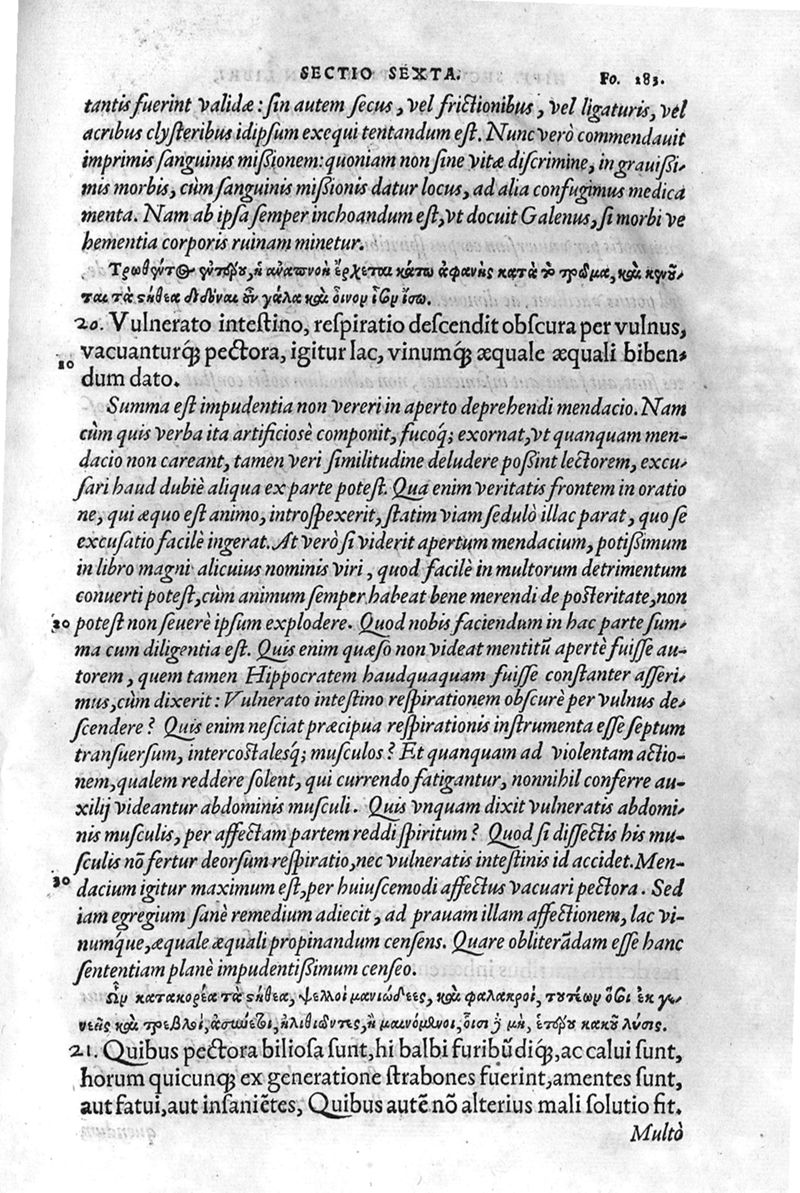 SECTIO SEXTA. Fo. 183.
tantis fuerint validæ: sin autem secus, vel frictionibus, vel ligaturis, vel
acribus clysteribus idipsum exequi tentandum est. Nunc verò commendauit
imprimis sanguinis missionem: quoniam non sine vitæ discrimine, in grauissi-
mis morbis, cùm sanguinis missionis datur locus, ad alia confugimus medica
menta. Nam ab ipsa semper inchoandum est, vt docuit Galenus, si morbi ve
hementia corporis ruinam minetur.
ἡ ἀναπνοὴ ἔρχεται κάτω ἀφανὴς κατὰ τὸ τρῶμα, καὶ
τὰ στήθεα διδόναι οὖν γάλα καὶ οἶνον ἴσον ἴσῳ.
20. Vulnerato intestino, respiratio descendit obscura per vulnus,
vacuanturq; pectora, igitur lac, vinumq; æquale æquali biben-
10
dum dato.
Summa est impudentia non vereri in aperto deprehendi mendacio. Nam
cùm quis verba ita artificiosè componit, fucoq́; exornat, vt quanquam men-
dacio non careant, tamen veri similitudine deludere possint lectorem, excu-
sari haud dubiè aliqua ex parte potest. Qua enim veritatis frontem in oratio
ne, qui æquo est animo, introspexerit, statim viam sedulò illac parat, quo se
excusatio facilè ingerat. At verò si viderit apertum mendacium, potissimum
in libro magni alicuius nominis viri, quod facilè in multorum detrimentum
conuerti potest, cùm animum semper habeat bene merendi de posteritate, non
30 potest non seuerè ipsum explodere. Quod nobis faciendum in hac parte sum-
ma cum diligentia est. Quis enim quæso non videat mentitū apertè fuisse au-
torem, quem tamen Hippocratem haudquaquam fuisse constanter asseri-
mus, cùm dixerit: Vulnerato intestino respirationem obscurè per vulnus de-
scendere? Quis enim nesciat præcipua respirationis instrumenta esse septum
transuersum, intercostalesq; musculos? Et quanquam ad violentam actio-
nem, qualem reddere solent, qui currendo fatigantur, nonnihil conferre au-
xilij videantur abdominis musculi. Quis vnquam dixit vulneratis abdomi-
nis musculis, per affectam partem reddi spiritum? Quod si dissectis his mu-
sculis nō fertur deorsum respiratio, nec vulneratis intestinis id accidet. Men-
30 dacium igitur maximum est, per huiuscemodi affectus vacuari pectora. Sed
iam egregium sanè remedium adiecit, ad prauam illam affectionem, lac vi-
numq́ue, æquale æquali propinandum censens. Quare obliterādam esse hanc
sententiam planè impudentissimum censeo.
Ὧν κατακορέα τὰ στήθεα, ψελλοὶ μανιώδεες, καὶ φαλακροὶ, τουτέων ὅσοι ἐκ γε-
νεῆς καὶ στρεβλοὶ, ἢ μαινόμενοι, οἷσι μὴ, ἑτέρου κακοῦ λύσις.
21. Quibus pectora biliosa sunt, hi balbi furibūdiq;, ac calui sunt,
horum quicunq; ex generatione strabones fuerint, amentes sunt,
aut fatui, aut insaniētes, Quibus autē nō alterius mali solutio fit.
Multò